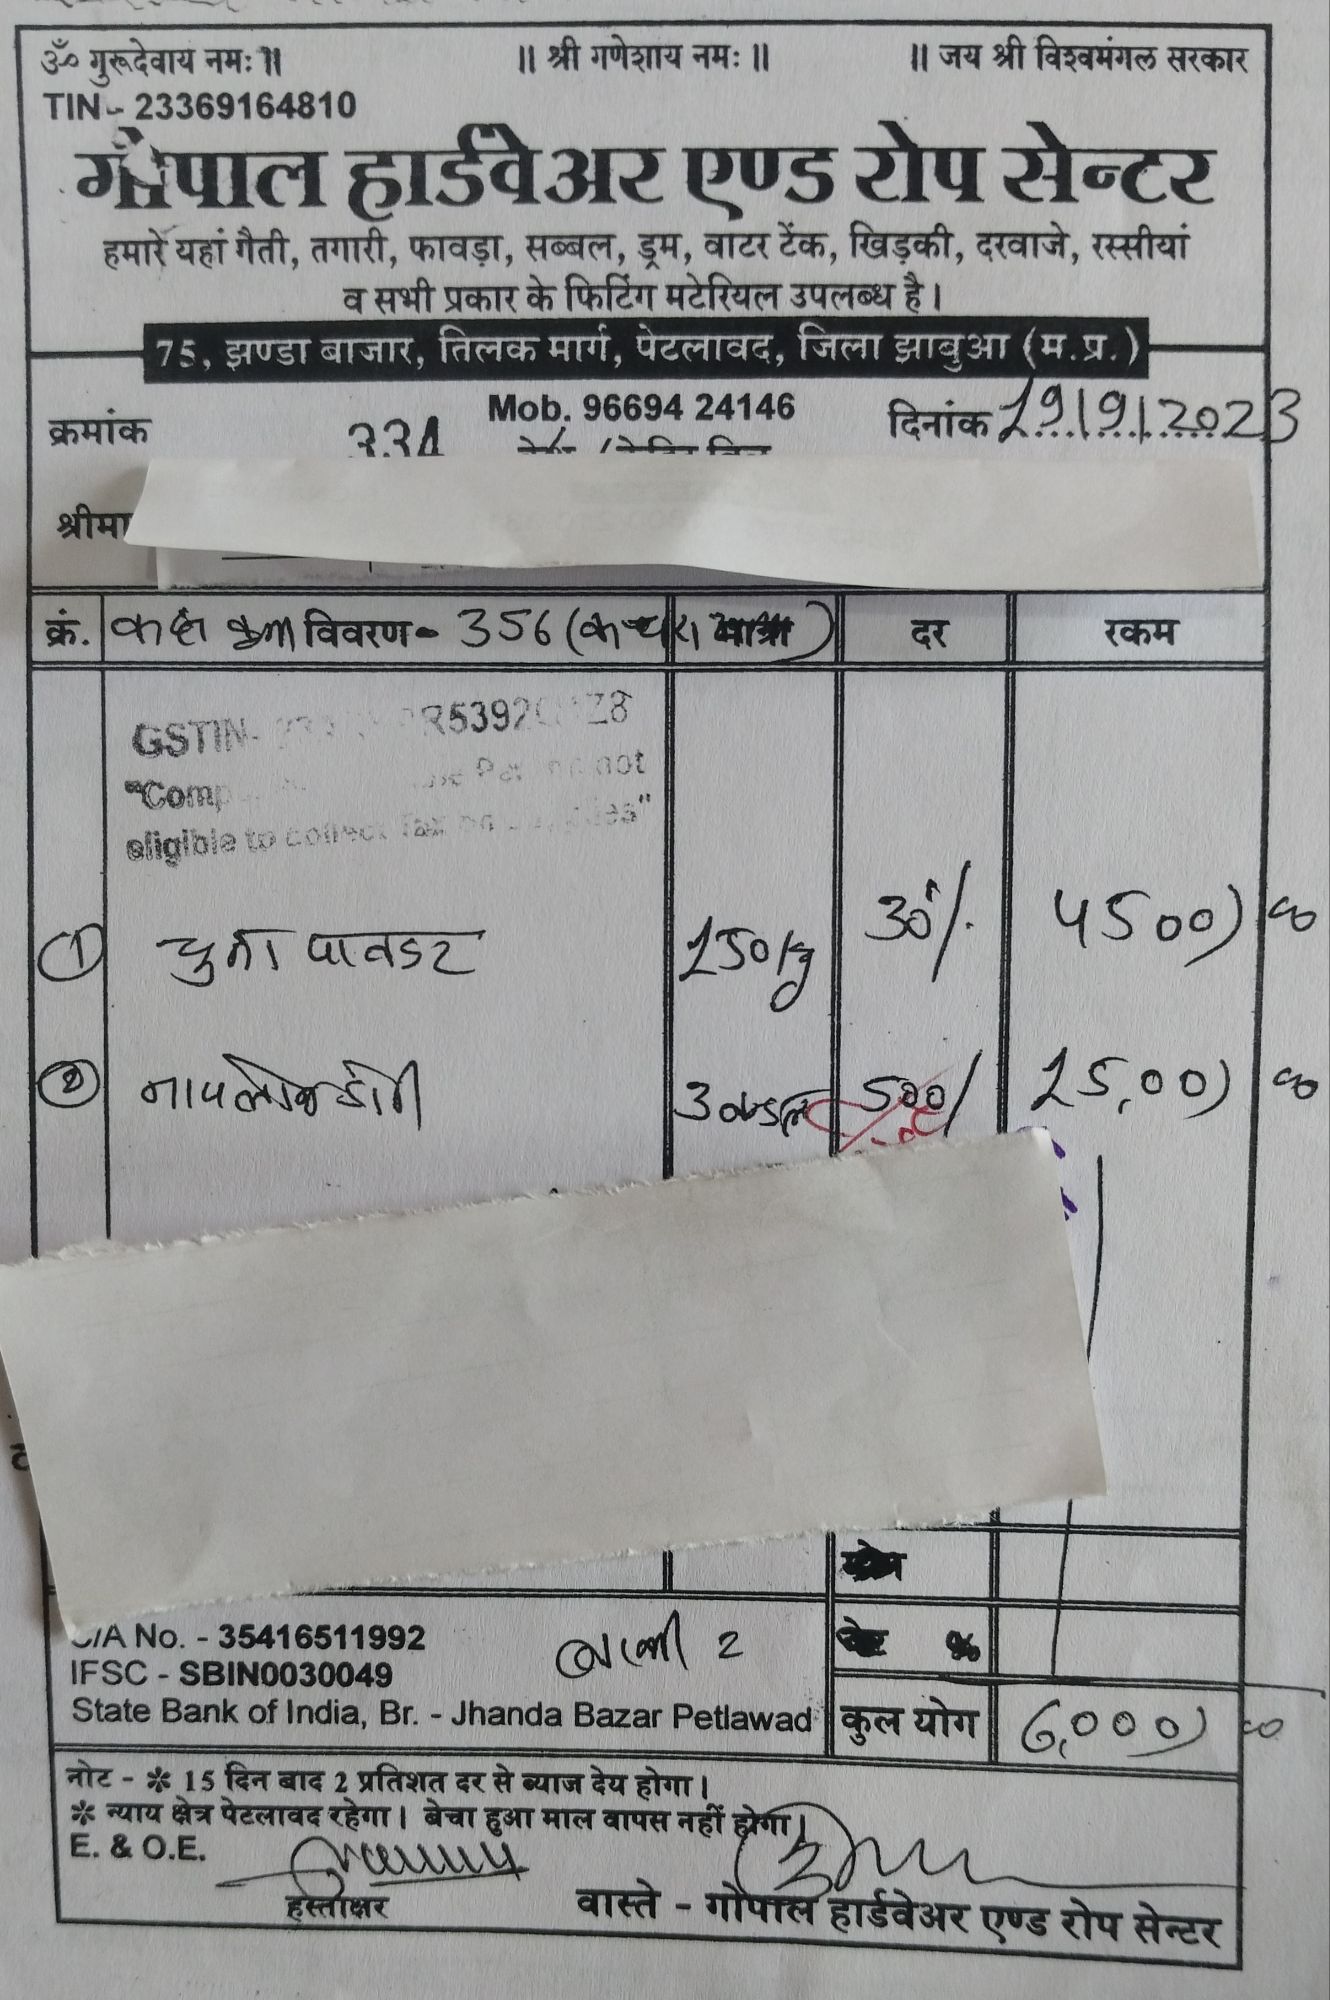 ॐ गुरूदेवाय नमः ॥ ॥ श्री गणेशाय नमः ॥ ॥ जय श्री विश्वमंगल सरकार
TIN - 23369164810
गोपाल हार्डवेअर एण्ड रोप सेन्टर
हमारे यहां गैती, तगारी, फावड़ा, सब्बल, ड्रम, वाटर टेंक, खिड़की, दरवाजे, रस्सीयां
व सभी प्रकार के फिटिंग मटेरियल उपलब्ध है।
75, झण्डा बाजार, तिलक मार्ग, पेटलावद, जिला झाबुआ (म.प्र.)
Mob. 96694 24146
क्रमांक 334 दिनांक 19/9/2023
श्रीमा
क्रं. विवरण - 356 दर रकम
GSTIN- R5392 Z8
"Comp not
eligible to collect Tax on
1 चुना पावडर 150 kg 30/- 4500) 00
2 नायलोन डोरी 3 बण्डल 500/ 15,00) 00
C/A No. - 35416511992
IFSC - SBIN0030049 2
State Bank of India, Br. - Jhanda Bazar Petlawad कुल योग 6,000) 00
नोट - * 15 दिन बाद 2 प्रतिशत दर से ब्याज देय होगा।
* न्याय क्षेत्र पेटलावद रहेगा। बेचा हुआ माल वापस नहीं होगा।
E. & O.E.
हस्ताक्षर वास्ते - गोपाल हार्डवेअर एण्ड रोप सेन्टर